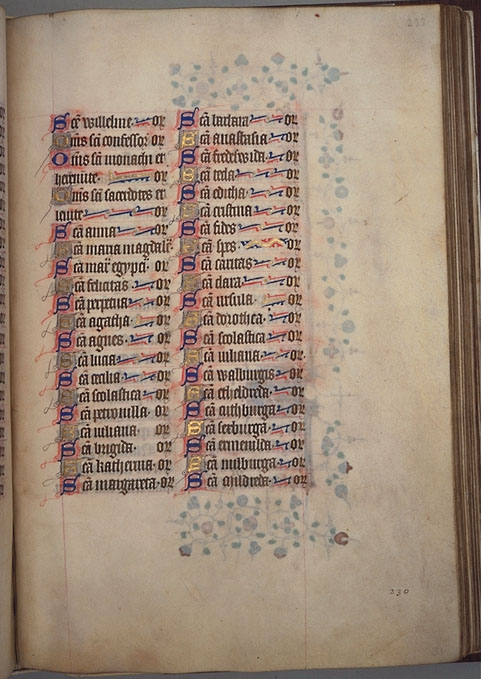 233
Scē willelme or
Om̄s sc̄i confessor̄ or
Om̄s sc̄i monachi et
hermite
Om̄s sc̄i sacerdotes et
leuite
Scā anna or
Scā maria magdal̄
Scā mar̄ egypc̄ or
Scā felicitas or
Scā perpetua or
Scā agatha or
Scā agnes or
Scā lucia or
Scā cecilia or
Scā scolastica or
Scā petronilla or
Scā iuliana or
Scā brigida or
Scā katherina or
Scā margareta or
Scā barbara or
Scā anastasia or
Scā fredeswida or
Scā tecla or
Scā editha or
Scā cristina or
Scā fides or
Scā spes or
Scā caritas or
Scā clara or
Scā ursula or
Scā dorothea or
Scā scolastica or
Scā iuliana or
Scā walburgis or
Scā etheldreda or
Scā cuthburga or
Scā sexburga or
Scā ermenilda or
Scā milburga or
Scā
230